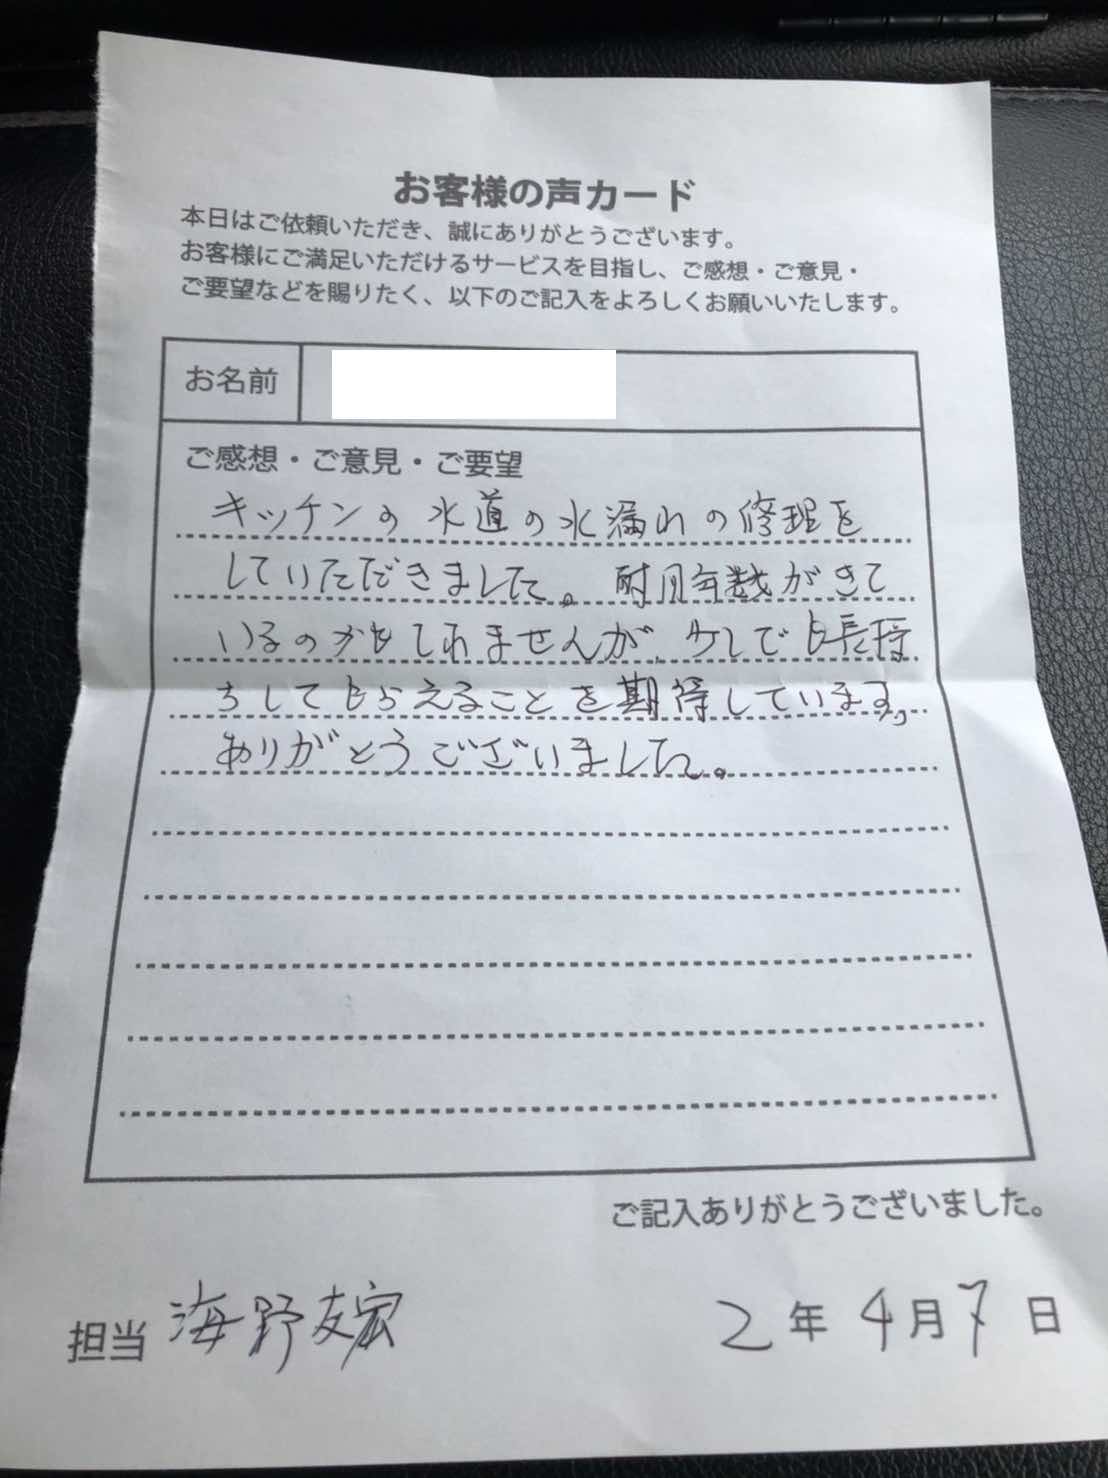 お客様の声カード
本日はご依頼いただき、誠にありがとうございます。
お客様にご満足いただけるサービスを目指し、ご感想・ご意見・
ご要望などを賜りたく、以下のご記入をよろしくお願いいたします。
お名前
ご感想・ご意見・ご要望
キッチンの水道の水漏れの修理を
していただきました。耐用年数がきて
いるのかもしれませんが、少しでも長持
ちしてもらえることを期待しています。
ありがとうございました。
ご記入ありがとうございました。
担当 海野友宏
2年4月7日